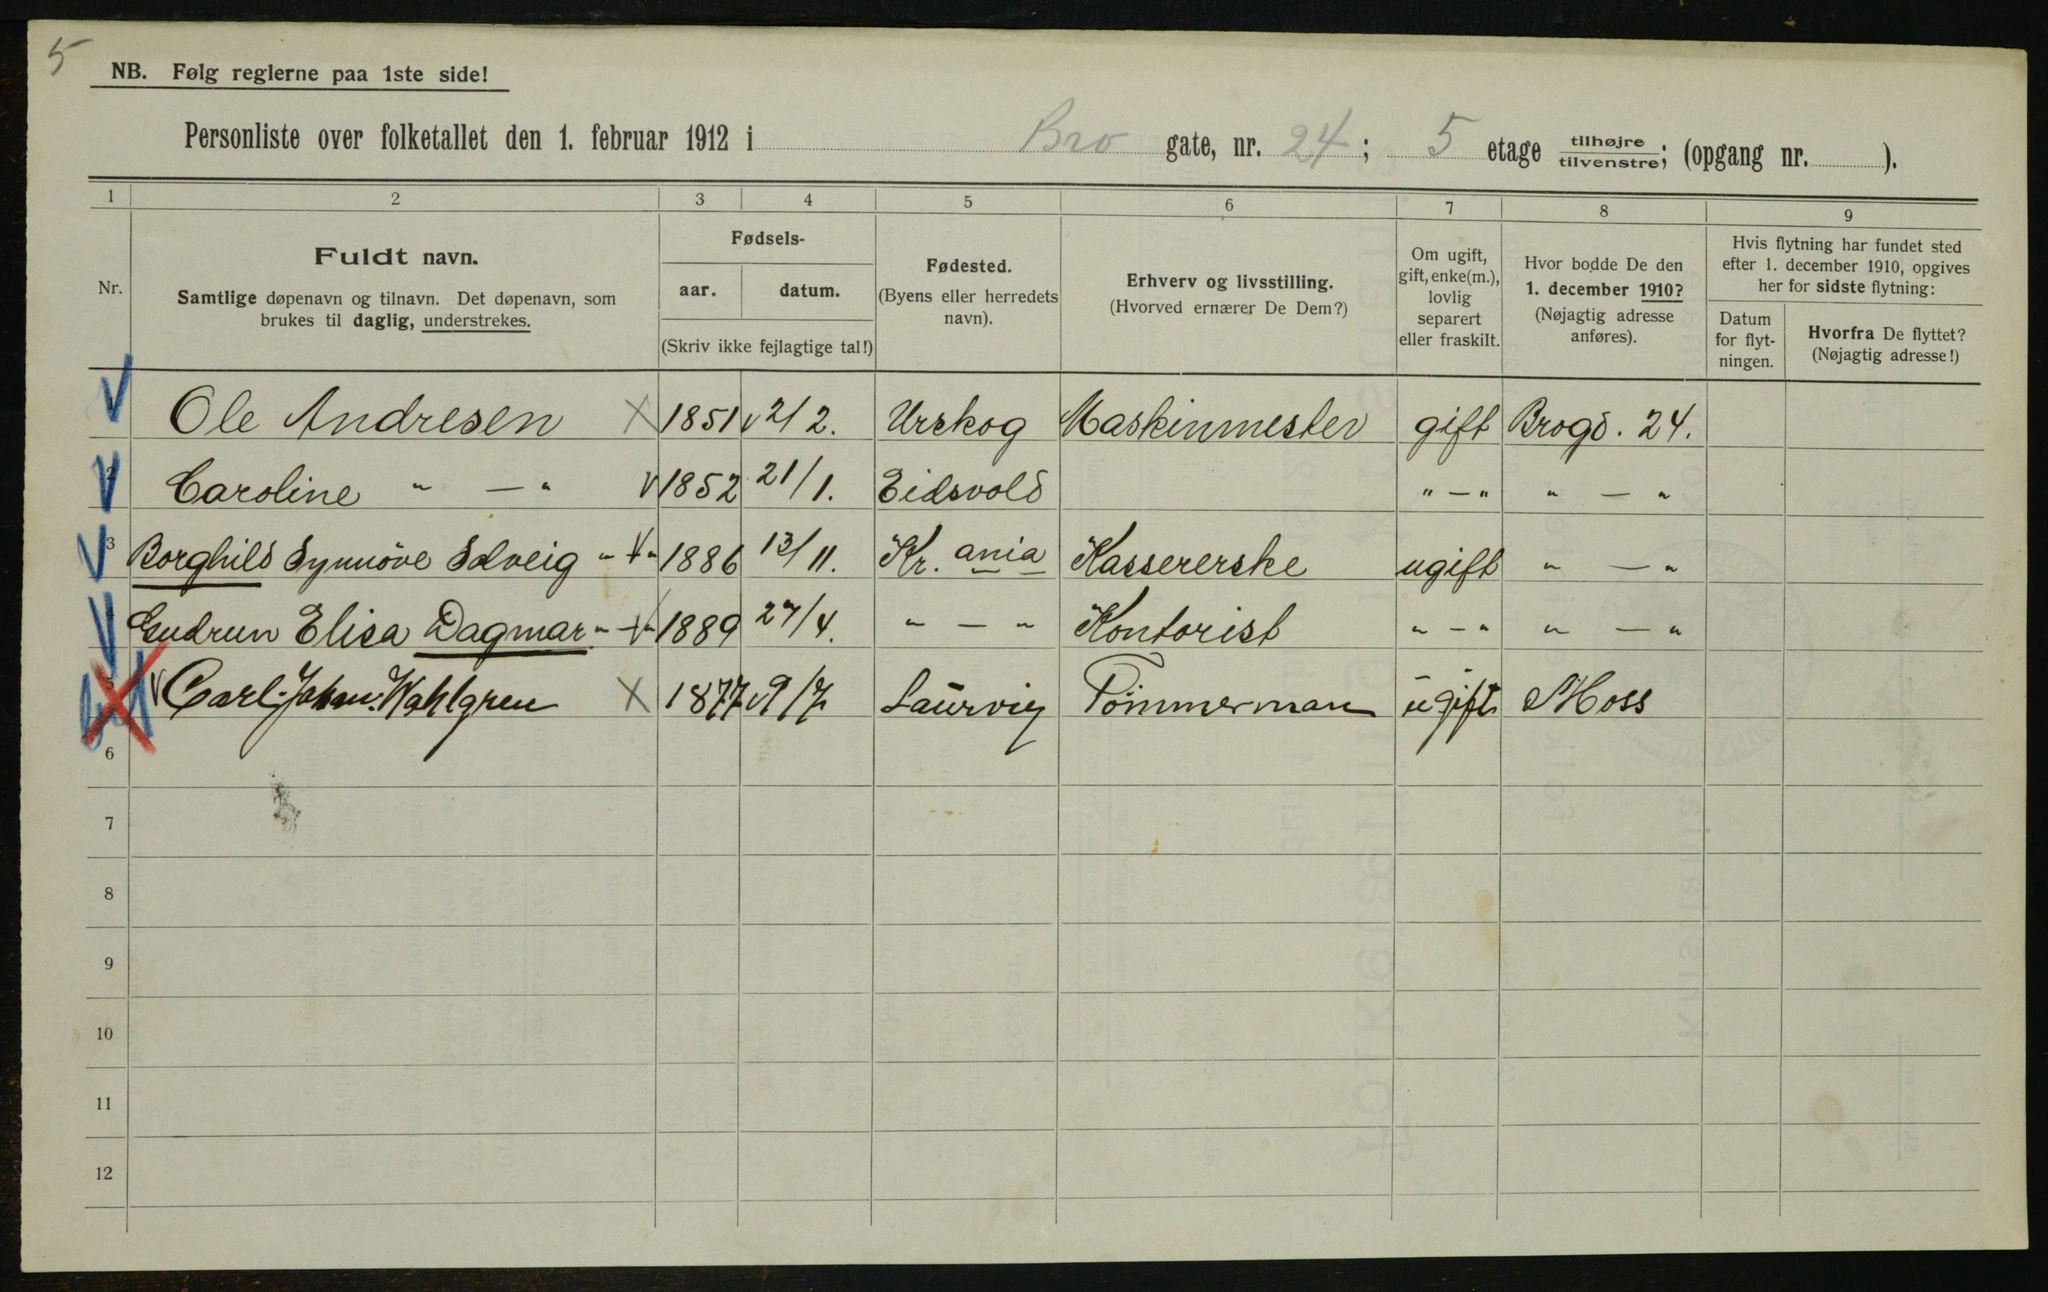 5
NB. Følg reglerne paa 1ste side!
Personliste over folketallet den 1. februar 1912 i Bro gate, nr. 24; 5 etage tilhøjre/tilvenstre; (opgang nr. ).
1 2 3 4 5 6 7 8 9
Nr.
Fuldt navn.
Samtlige døpenavn og tilnavn. Det døpenavn, som
brukes til daglig, understrekes.
Fødsels-
aar. datum.
(Skriv ikke fejlagtige tal!)
Fødested.
(Byens eller herredets
navn).
Erhverv og livsstilling.
(Hvorved ernærer De Dem?)
Om ugift,
gift, enke(m.),
lovlig
separert
eller fraskilt.
Hvor bodde De den
1. december 1910?
(Nøjagtig adresse
anføres).
Hvis flytning har fundet sted
efter 1. december 1910, opgives
her for sidste flytning:
Datum
for flyt-
ningen.
Hvorfra De flyttet?
(Nøjagtig adresse!)
1 Ole Andresen X 1851 v 2/2. Urskog Maskinmester gift Brogd. 24.
2 Caroline " — " V 1852 21/1. Eidsvold " — " " — "
3 Borghild Synnöve Solveig " — " 1886 13/11. Kr. ania Kassererske ugift " — "
4 Gudrun Elisa Dagmar " — " 1889 27/4. " — " Kontorist " — " " — "
5 V Carl. Johan. Wahlgren X 1877 v 9/7 Laurvig Tömmerman ugift Moss
6
7
8
9
10
11
12